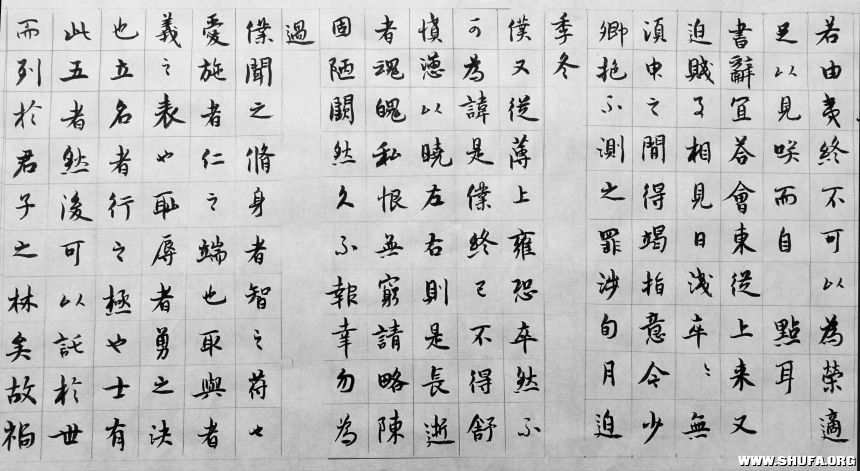 若由夷終不可以為榮適
足以見咲而自點耳
書辭宜答會東從上来又
迫賤事相見日淺卒〻無
湏臾之間得竭指意今少
卿抱不測之罪涉旬月迫
季冬
僕又從薄上雍恐卒然不
可為諱是僕終已不得舒
憤懣以曉左右則是長逝
者魂魄私恨無窮請略陳
固陋闕然久不報幸勿為
過
僕聞之脩身者智之符也
愛施者仁之端也取與者
義之表也恥辱者勇之决
也立名者行之極也士有
此五者然後可以託於世
而列於君子之林矣故禍
WWW.SHUFA.ORG